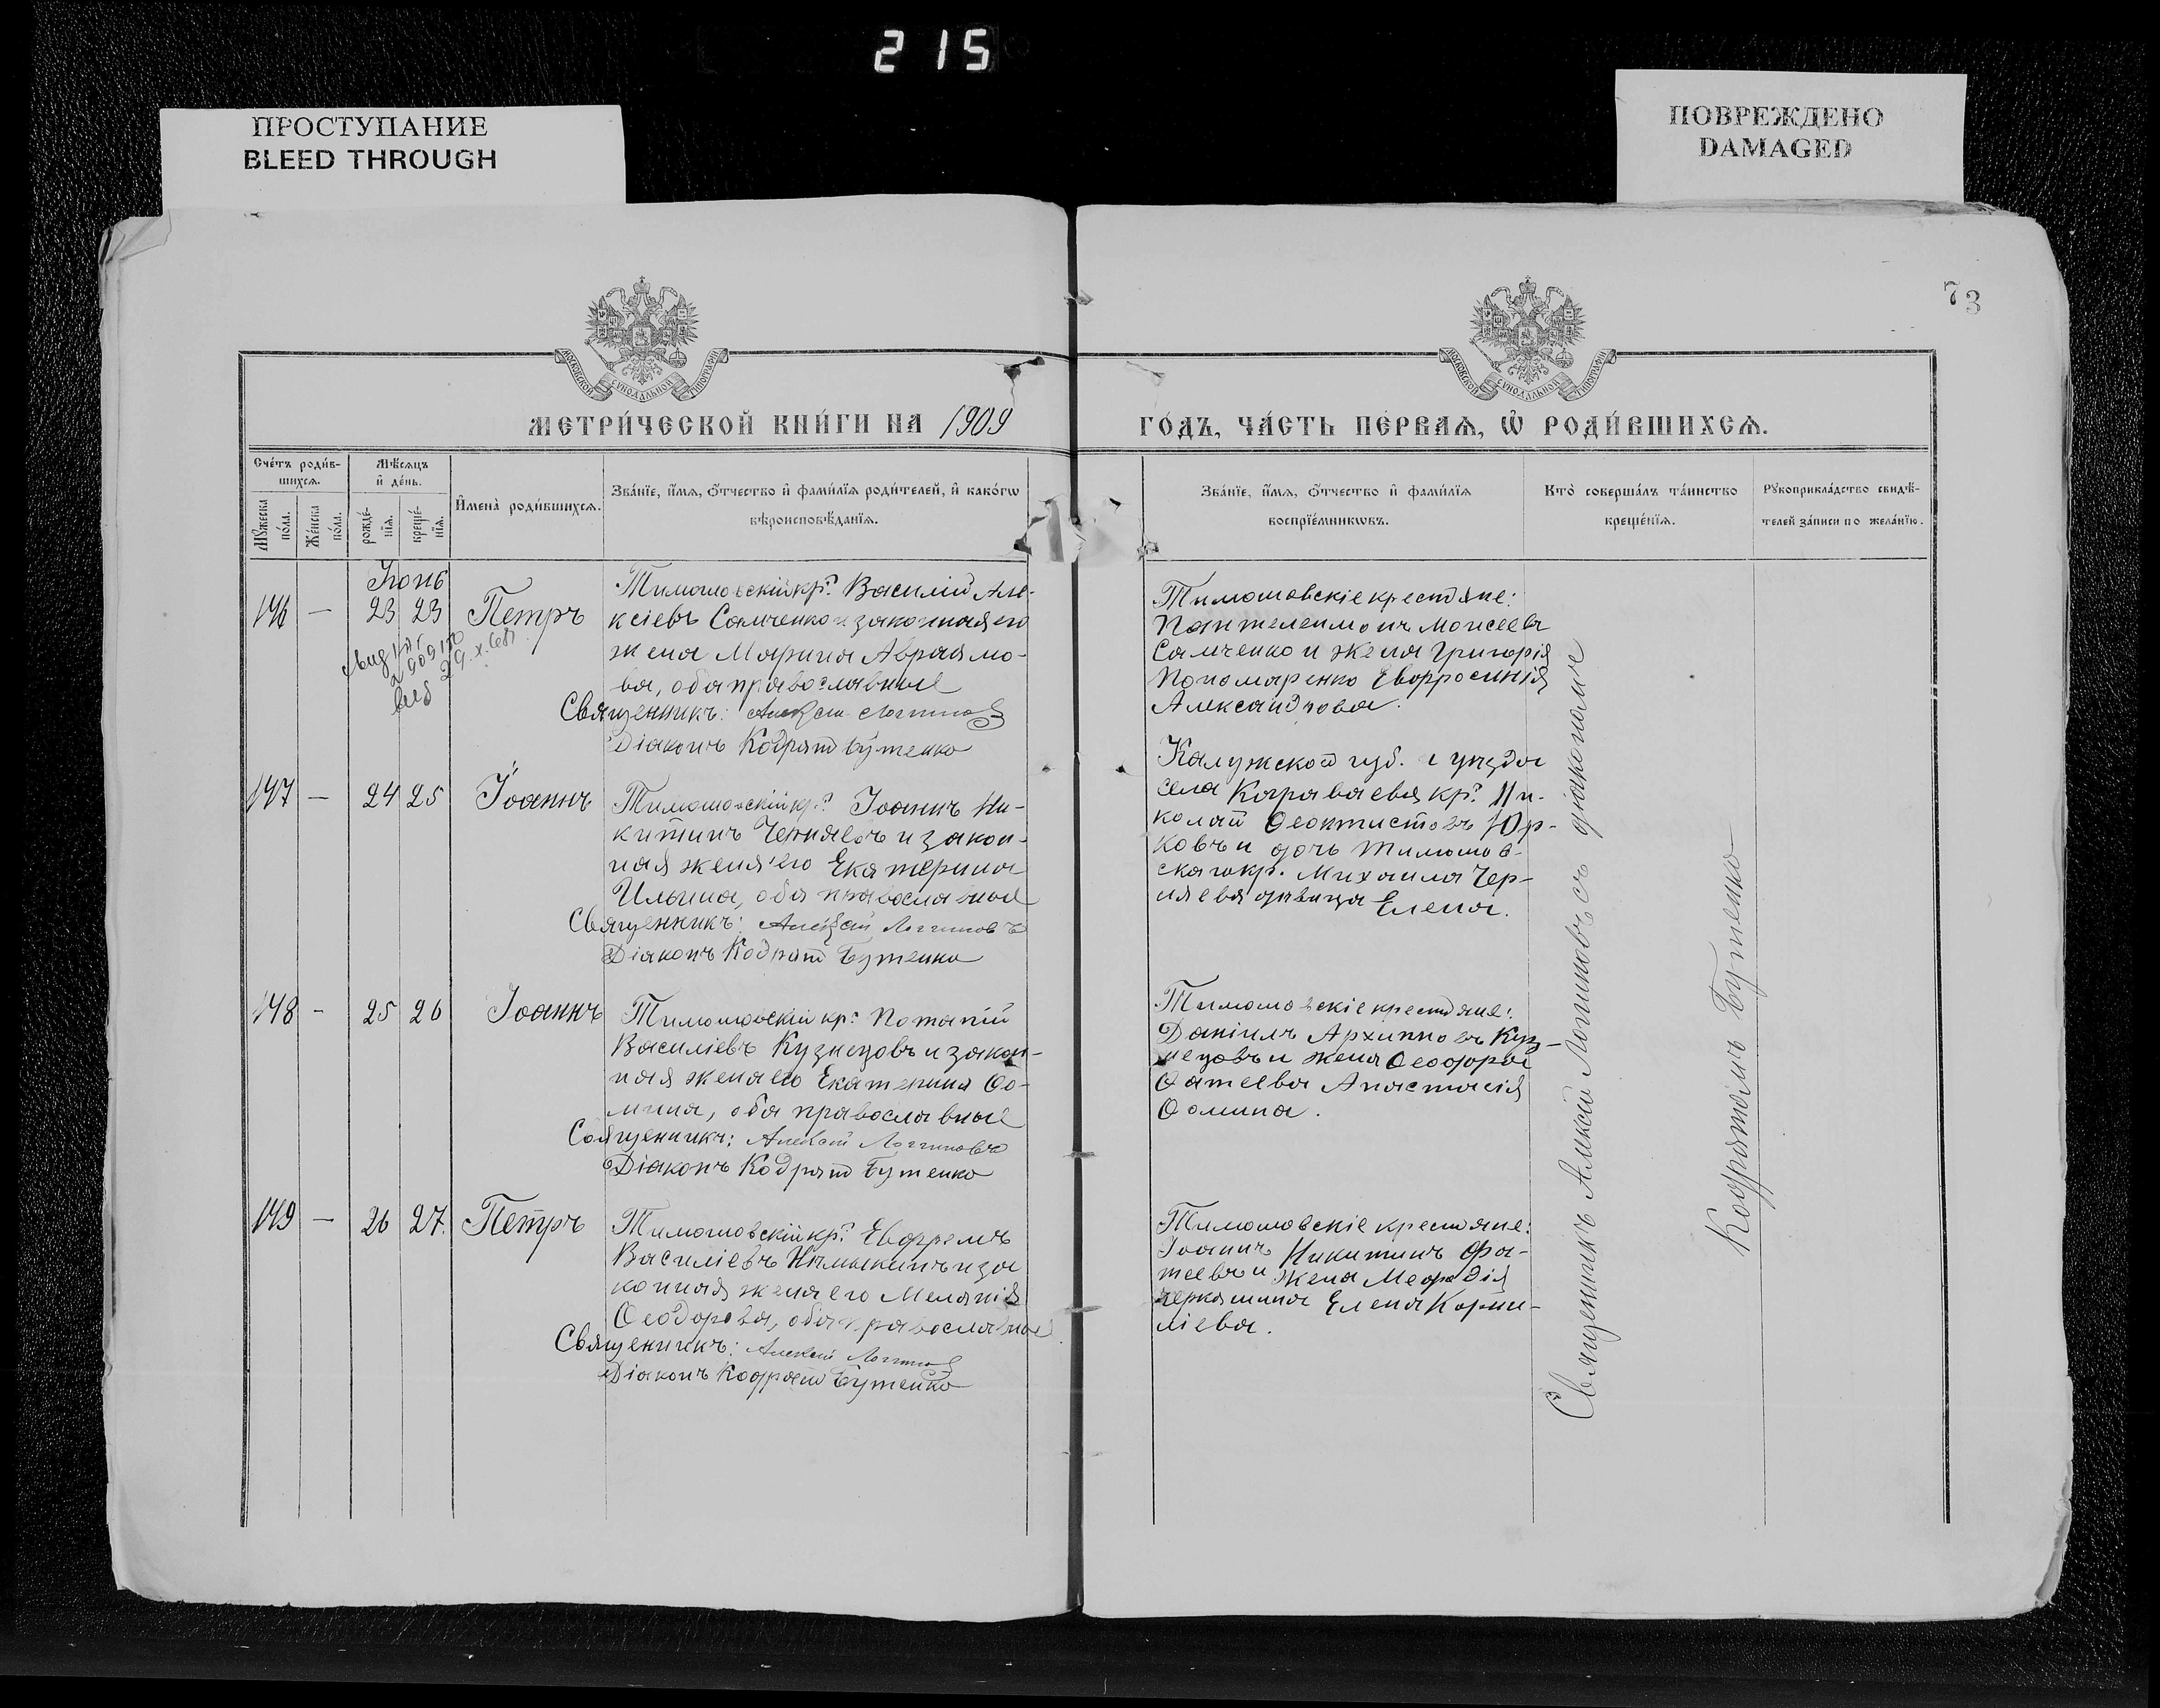 215
ПРОСТУПАНИЕ
BLEED THROUGH
ПОВРЕЖДЕНО
DAMAGED
73
МОСКОВСКОЙ СѴНОДАЛЬНОЙ ТИПОГРАФІИ
МОСКОВСКОЙ СѴНОДАЛЬНОЙ ТИПОГРАФІИ
МЕТРИ́ЧЕСКОЙ КНИ́ГИ НА 1909
ГО́ДЪ, ЧА́СТЬ ПЕ́РВАѦ, Ѡ҆ РОДИ́ВШИХСѦ.
Сче́тъ роди́в-
шихсѧ.
Мꙋ́жеска
по́ла.
Же́нска
по́ла.
Мѣ́сѧцъ
и҆ де́нь.
рожде́-
нїѧ.
креще́-
нїѧ.
И҆мена̀ роди́вшихсѧ.
Зва́нїе, и҆́мѧ, ѻ҆́тчество и҆ фами́лїѧ роди́телей, и҆ како́гѡ
вѣроисповѣ́данїѧ.
Зва́нїе, и҆́мѧ, ѻ҆́тчество и҆ фами́лїѧ
воспрїе́мникѡвъ.
Кто̀ соверша́лъ та́инство
креще́нїѧ.
Рꙋкоприкла́дство свидѣ́-
телей за́писи по жела́нїю.
Іюнь
146 — 23 23 Петръ
Тимошовскій кр. Василій Але-
ксіевъ Самченко и законная его
жена Марина Авраамо-
ва, оба православные
Священникъ: Алексій Логгиновъ
Діаконъ Кодратъ Бутенко
Тимошовскіе крестьяне:
Пантелеимонъ Моисеевъ
Самченко и жена Григорія
Пономаренко Евфросинія
Александрова.
147 — 24 25 Іоаннъ
Тимошовскій кр. Іоаннъ Ни-
китинъ Черняевъ и закон-
ная жена его Екатерина
Ильина, оба православные
Священникъ: Алексій Логгиновъ
Діаконъ Кодратъ Бутенко
Калужской губ. и уезда
села Караваева кр. Ни-
колай Феоктистовъ Юр-
ковъ и дочь Тимошов-
скаго кр. Михаила Чер-
няева девица Елена.
148 — 25 26 Іоаннъ
Тимошовскій кр. Потапій
Василіевъ Кузнецовъ и закон-
ная жена его Екатерина Ѳо-
мина, оба православные
Священникъ: Алексій Логгиновъ
Діаконъ Кодратъ Бутенко
Тимошовскіе крестьяне:
Даніилъ Архиповъ Куз-
нецовъ и жена Ѳеодора
Ѳатеева Анастасія
Ѳомина.
149 — 26 27 Петръ
Тимошовскій кр. Евфремъ
Василіевъ и за
конная жена его Меланія
Ѳеодорова, оба православные
Священникъ: Алексій Логгиновъ
Діаконъ Кодратъ Бутенко
Тимошовскіе крестьяне:
Іоаннъ Никитинъ Фа-
теевъ и жена Меѳодія
Черкашина Елена Корни-
ліева.
Священникъ Алексій Логгиновъ съ діакономъ
Кодратомъ Бутенко